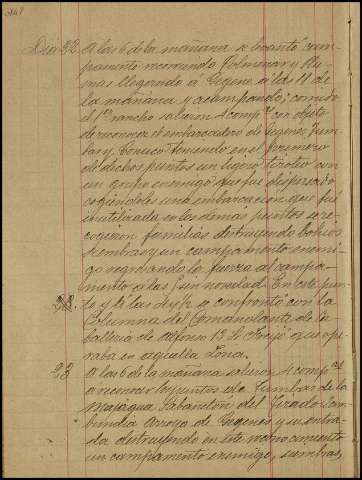 Dia 22 A las 6 de la mañana se levantó cam-
pamento recorriendo Palmenar y Ru-
nas llegando á Gegenes á las 11 de
la mañana y acampando; comido
el 1er rancho salieron 4 compas con objeto
de reconocer el embarcadero de Gegenes, Jum-
bas y Conuco teniendo en el primero
de dichos puntos un ligero tiroteo con
un grupo enemigo que fue dispersado
cogiéndoles una embarcación que fué
inutilizada, en los demas puntos se re-
cogieron familias destruyendo bohios
siembras y un campamento enemi-
go regresando la fuerza al campa-
mento a las sin novedad. En este pun-
to y á las se confrontó con la
Columna del Comandante de Ca-
balleria de Alfonso 13 Sr. que ope-
raba en aquella zona.
23 A las 6 de la mañana salieron 4 compas
a reconocer los puntos de Jumbas de la
Majagua Sabanetón del Tirado
Arroyo de Gegenes y su entra-
da destruyendo en este reconocimiento
un campamento enemigo, siembras,